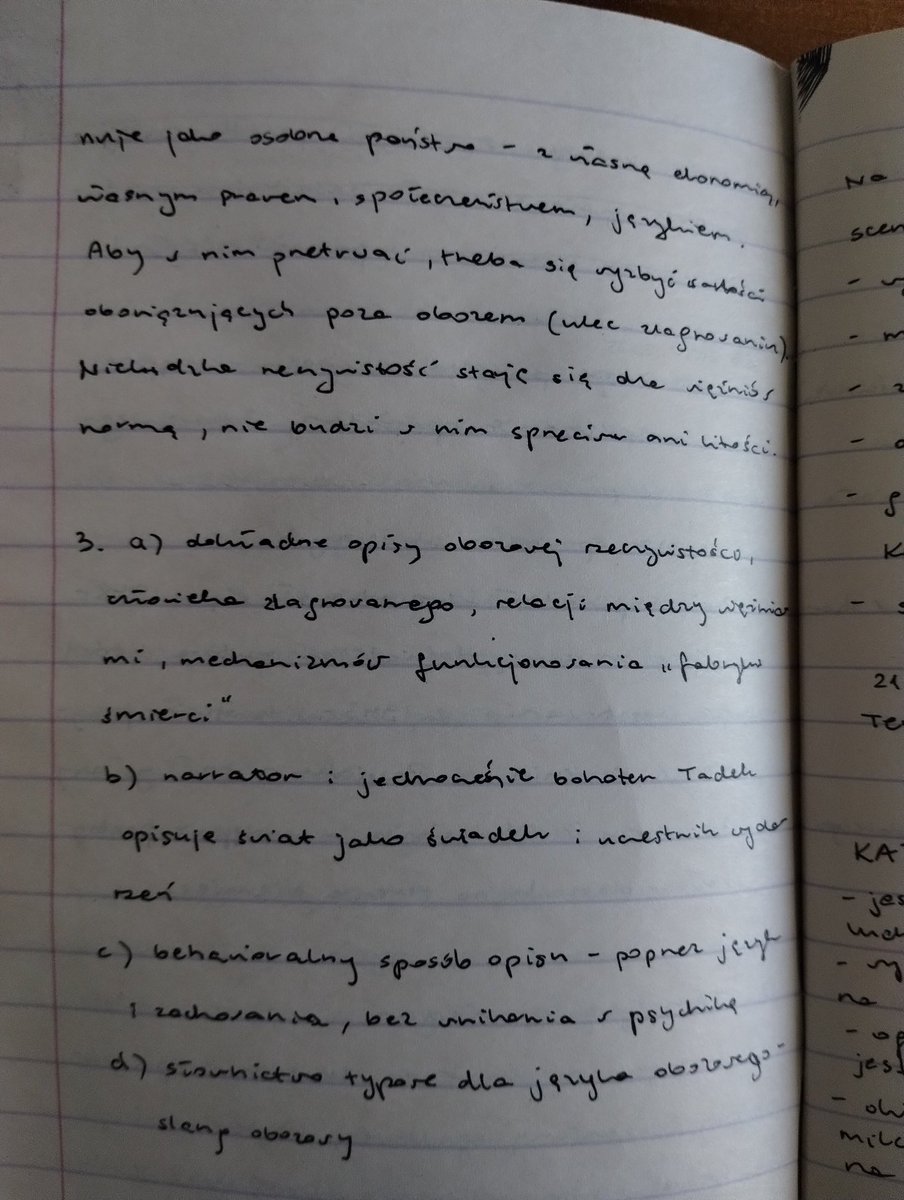 nuje jako osobne państwo - z własną ekonomią,
własnym prawem, społeczeństwem, językiem.
Aby w nim przetrwać, trzeba się wyzbyć wartości
obowiązujących poza obozem (ulec zlagrowaniu).
Nieludzka rzeczywistość staje się dla więźniów
normą, nie budzi w nim sprzeciwu ani litości.
3. a) dokładne opisy obozowej rzeczywistości,
człowieka zlagrowanego, relacji między więźnia
mi, mechanizmów funkcjonowania „fabryki
śmierci"
b) narrator i jednocześnie bohater Tadek
opisuje świat jako świadek i uczestnik wyda
rzeń
c) behawioralny sposób opisu - poprzez język
i zachowania, bez wnikania w psychikę
d) słownictwo typowe dla języka obozowego -
slang obozowy
Na
scen
-
- m
-
-
-
K
-
21
Te
KA
- jes
-
na
- op
jes
-
milc
na